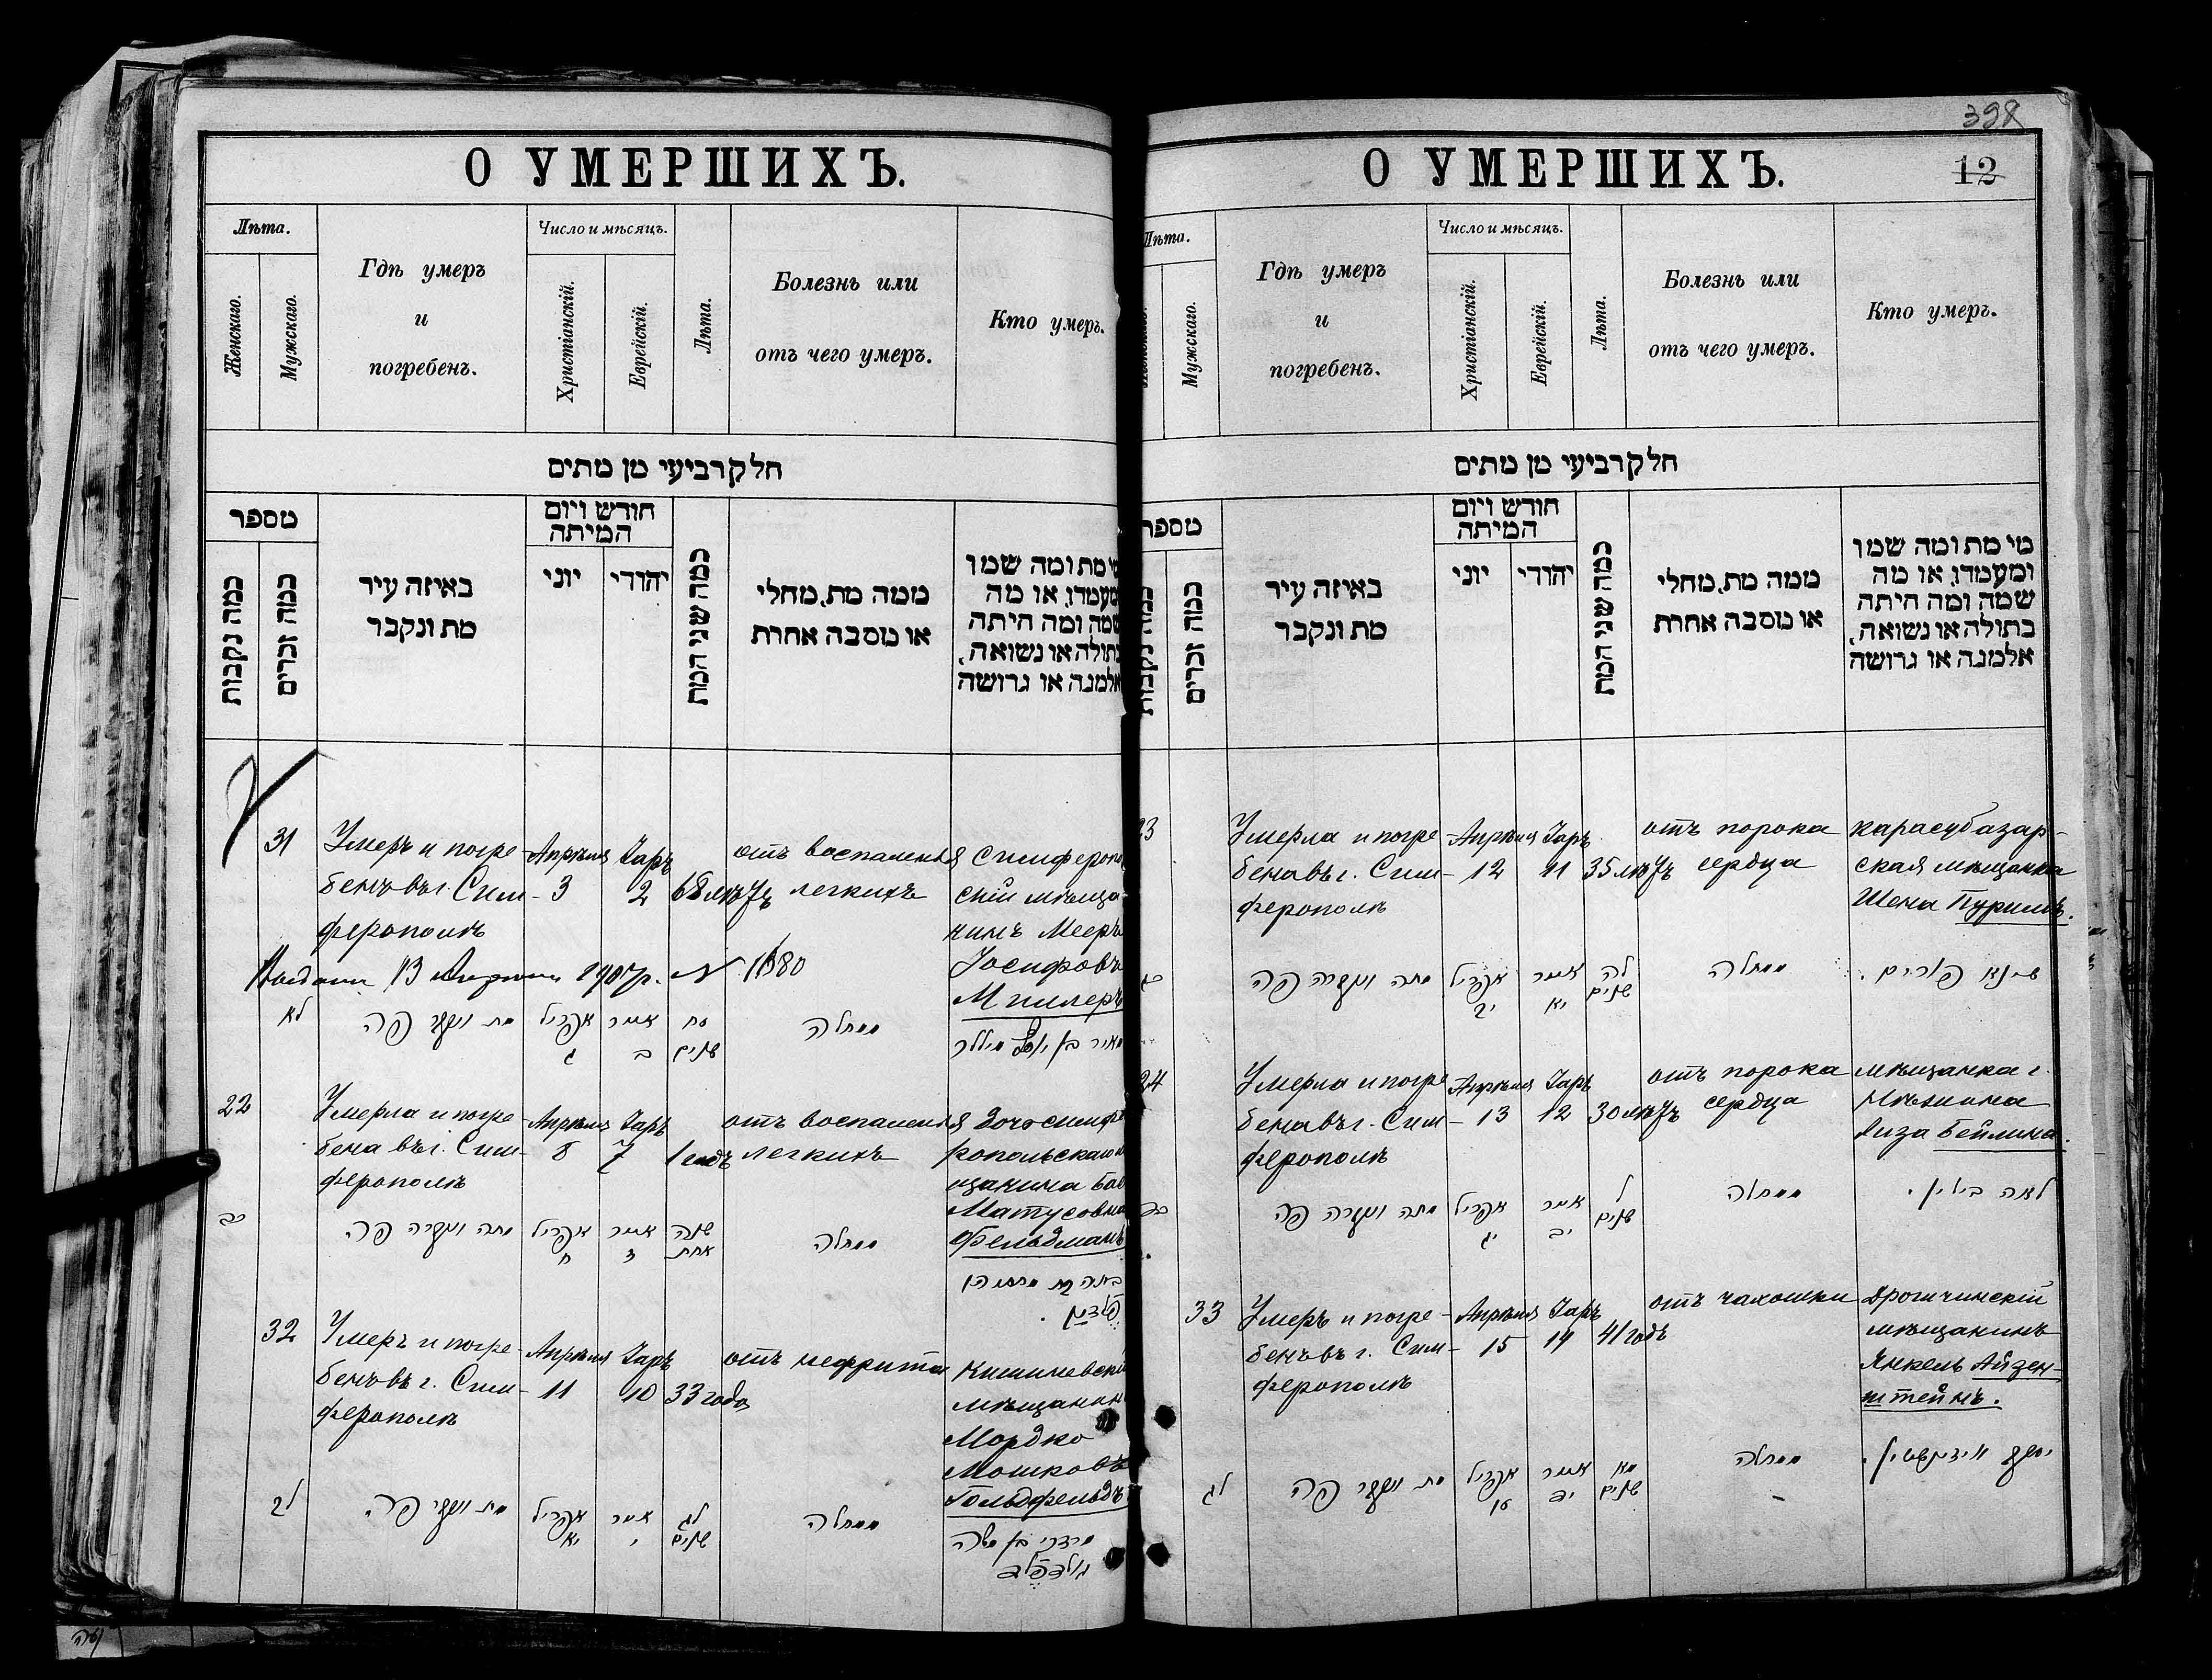 О УМЕРШИХЪ.
Лѣта.
Женскаго.
Мужскаго.
Гдѣ умеръ
и
погребенъ.
Число и мѣсяцъ.
Христіанскій.
Еврейскій.
Лѣта.
Болезнь или
отъ чего умеръ.
Кто умеръ.
חלק רביעי מן מתים
מספר
כמה נקבות
כמה זכרים
באיזה עיר
מת ונקבר
חודש ויום
המיתה
יוני
יהודי
כמה שני המת
ממה מת, מחלי
או מסבה אחרת
מי מת ומה שמו
ומעמדו, או מה
שמה ומה היתה
בתולה או נשואה,
אלמנה או גרושה
31
Умеръ и погре-
бенъ въ г. Сим-
ферополѣ
Апрѣля
3
Іаръ
2
68 лѣтъ
отъ воспаленья
легкихъ
Симферопо
скій мѣща-
нинъ Мееръ
Іосифовъ
Миллеръ
13 1907 г. № 1680
לא
מת ונקבר פה
אפריל
ג
אייר
ב
סח
שנים
ממחלה
מאיר בן יוסף מיללר
22
Умерла и погре-
бена въ г. Сим-
ферополѣ
Апрѣля
8
Іаръ
7
1 годъ
отъ воспаленья
легкихъ
дочь симфе
ропольскаго м
щанина
Матусовна
Фельдманъ
כב
מתה ונקברה פה
אפריל
ח
אייר
ז
שנה
אחת
ממחלה
פעלדמן.
32
Умеръ и погре-
бенъ въ г. Сим-
ферополѣ
Апрѣля
11
Іаръ
10
33 года
отъ нефрита
Кишиневскі
мѣщанин
Мордко
Мошковъ
Гольдфельдъ
לב
מת ונקבר פה
אפריל
יא
אייר
י
לג
שנים
ממחלה
מרדכי בן משה
גולדפעלד
398
О УМЕРШИХЪ.
12
Лѣта.
Мужскаго.
Гдѣ умеръ
и
погребенъ.
Число и мѣсяцъ.
Христіанскій.
Еврейскій.
Лѣта.
Болезнь или
отъ чего умеръ.
Кто умеръ.
חלק רביעי מן מתים
מספר
כמה זכרים
באיזה עיר
מת ונקבר
חודש ויום
המיתה
יוני
יהודי
כמה שני המת
ממה מת, מחלי
או מסבה אחרת
מי מת ומה שמו
ומעמדו, או מה
שמה ומה היתה
בתולה או נשואה,
אלמנה או גרושה
23
Умерла и погре
бена въ г. Сим-
ферополѣ
Апрѣля
12
Іаръ
11
35 лѣтъ
отъ порока
сердца
карасубазар-
ская мѣщанка
Шена Пуримъ.
מתה ונקברה פה
אפריל
יב
אייר
יא
לה
שנים
ממחלה
שיינא פורים.
24
Умерла и погре
бена въ г. Сим-
ферополѣ
Апрѣля
13
Іаръ
12
30 лѣтъ
отъ порока
сердца
мѣщанка г.
Лиза Бейлина.
מתה ונקברה פה
אפריל
יג
אייר
יב
ל
שנים
ממחלה
לאה ביילין.
33
Умеръ и погре-
бенъ въ г. Сим-
ферополѣ
Апрѣля
15
Іаръ
14
41 годъ
отъ чахотки
Дрогичинскій
мѣщанинъ
Янкель Айзен-
штейнъ.
לג
מת ונקבר פה
אפריל
טו
אייר
יד
מא
שנים
ממחלה
יעקב אייזינשטיין.